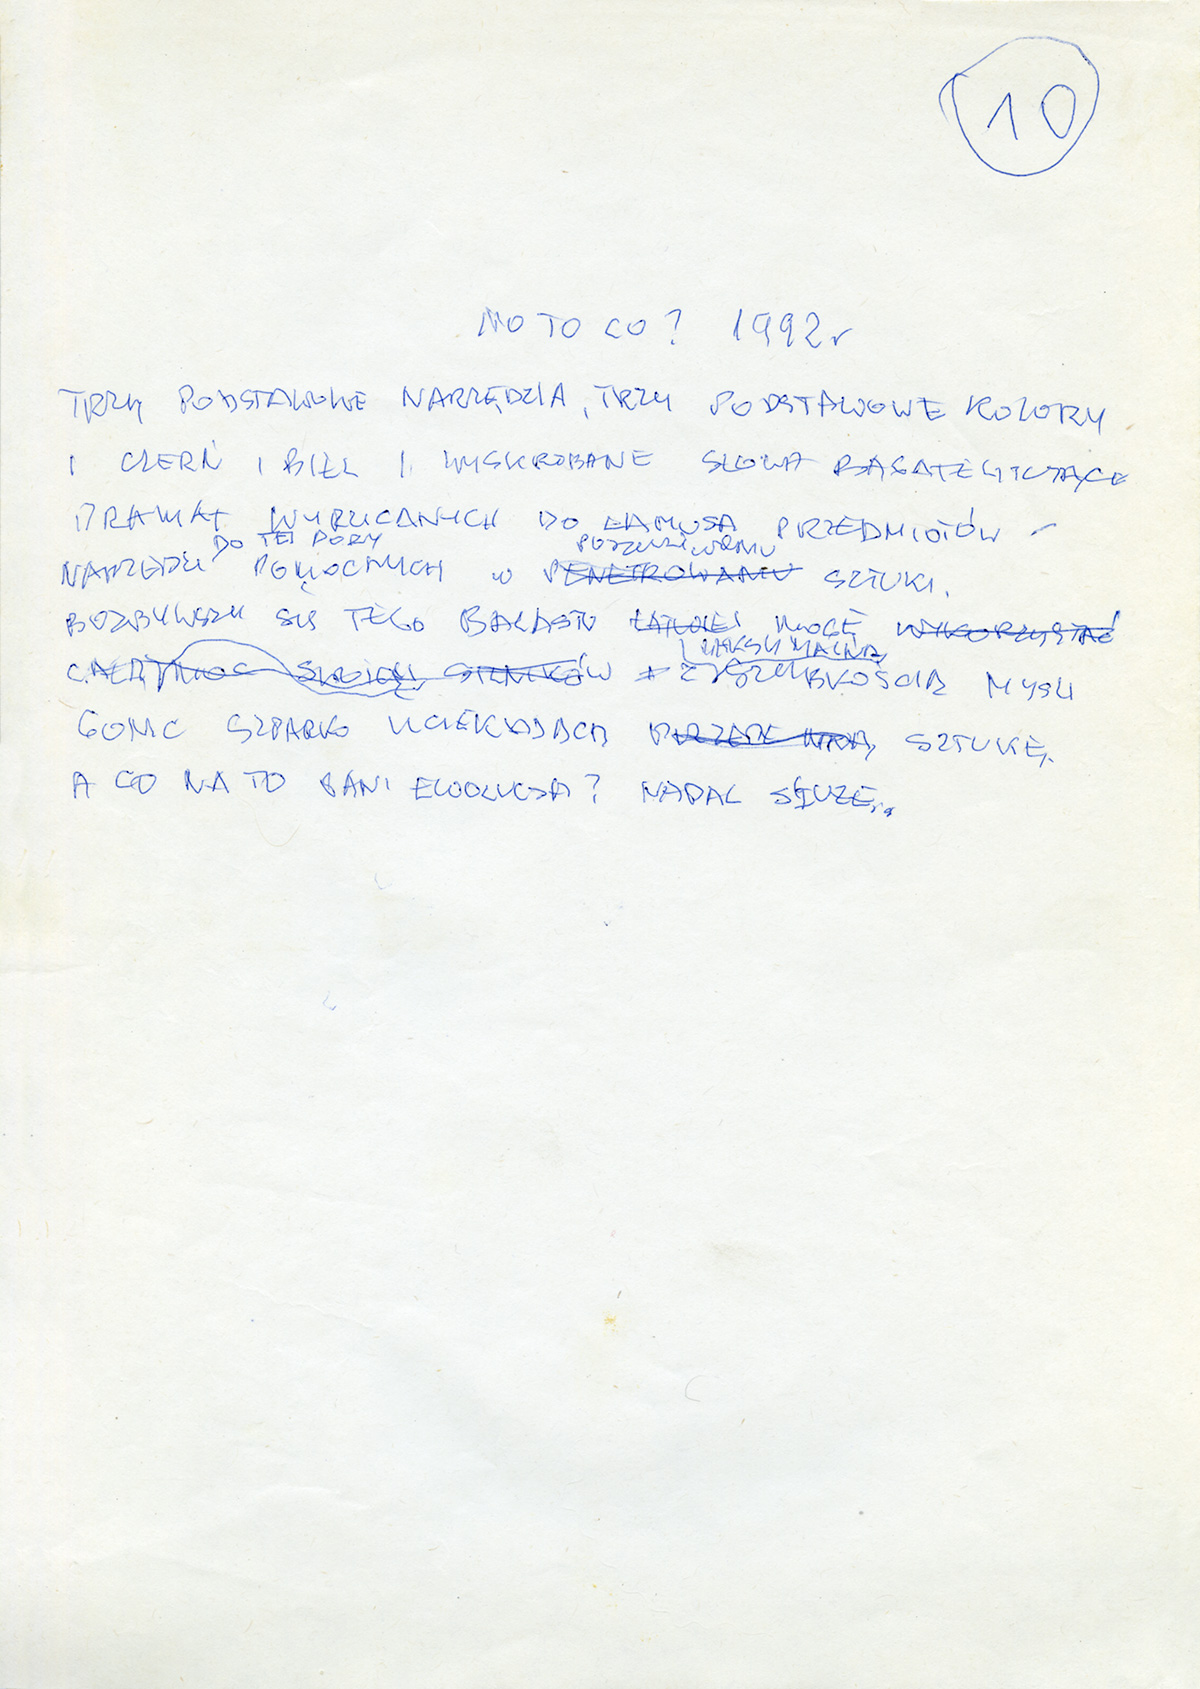 10
NO TO CO? 1992r
TRZY PODSTAWOWE NARZĘDZIA, TRZY PODSTAWOWE KOLORY
I CZERŃ I BIEL I WYSKROBANE SŁOWA BAGATELIZUJĄCE
DRAMAT WYRZUCANYCH DO LAMUSA PRZEDMIOTÓW –
DO TEJ PORY POSZUKIWANIU
NARZĘDZI POMOCNYCH W PENETROWANIU SZTUKI.
POZBYWSZY SIĘ TEGO BALASTU ŁATWIEJ MOGĘ WYKORZYSTAĆ
MAKSYMALNĄ
CAŁĄ MOC SWOICH SILNIKÓW Z SZYBKOŚCIĄ MYŚLI
GONIĆ SZPARKO UCIEKAJĄCĄ PRZEDE MNĄ SZTUKĘ.
A CO NA TO PANI EWOLUCJA? NADAL SŁUŻĘ...